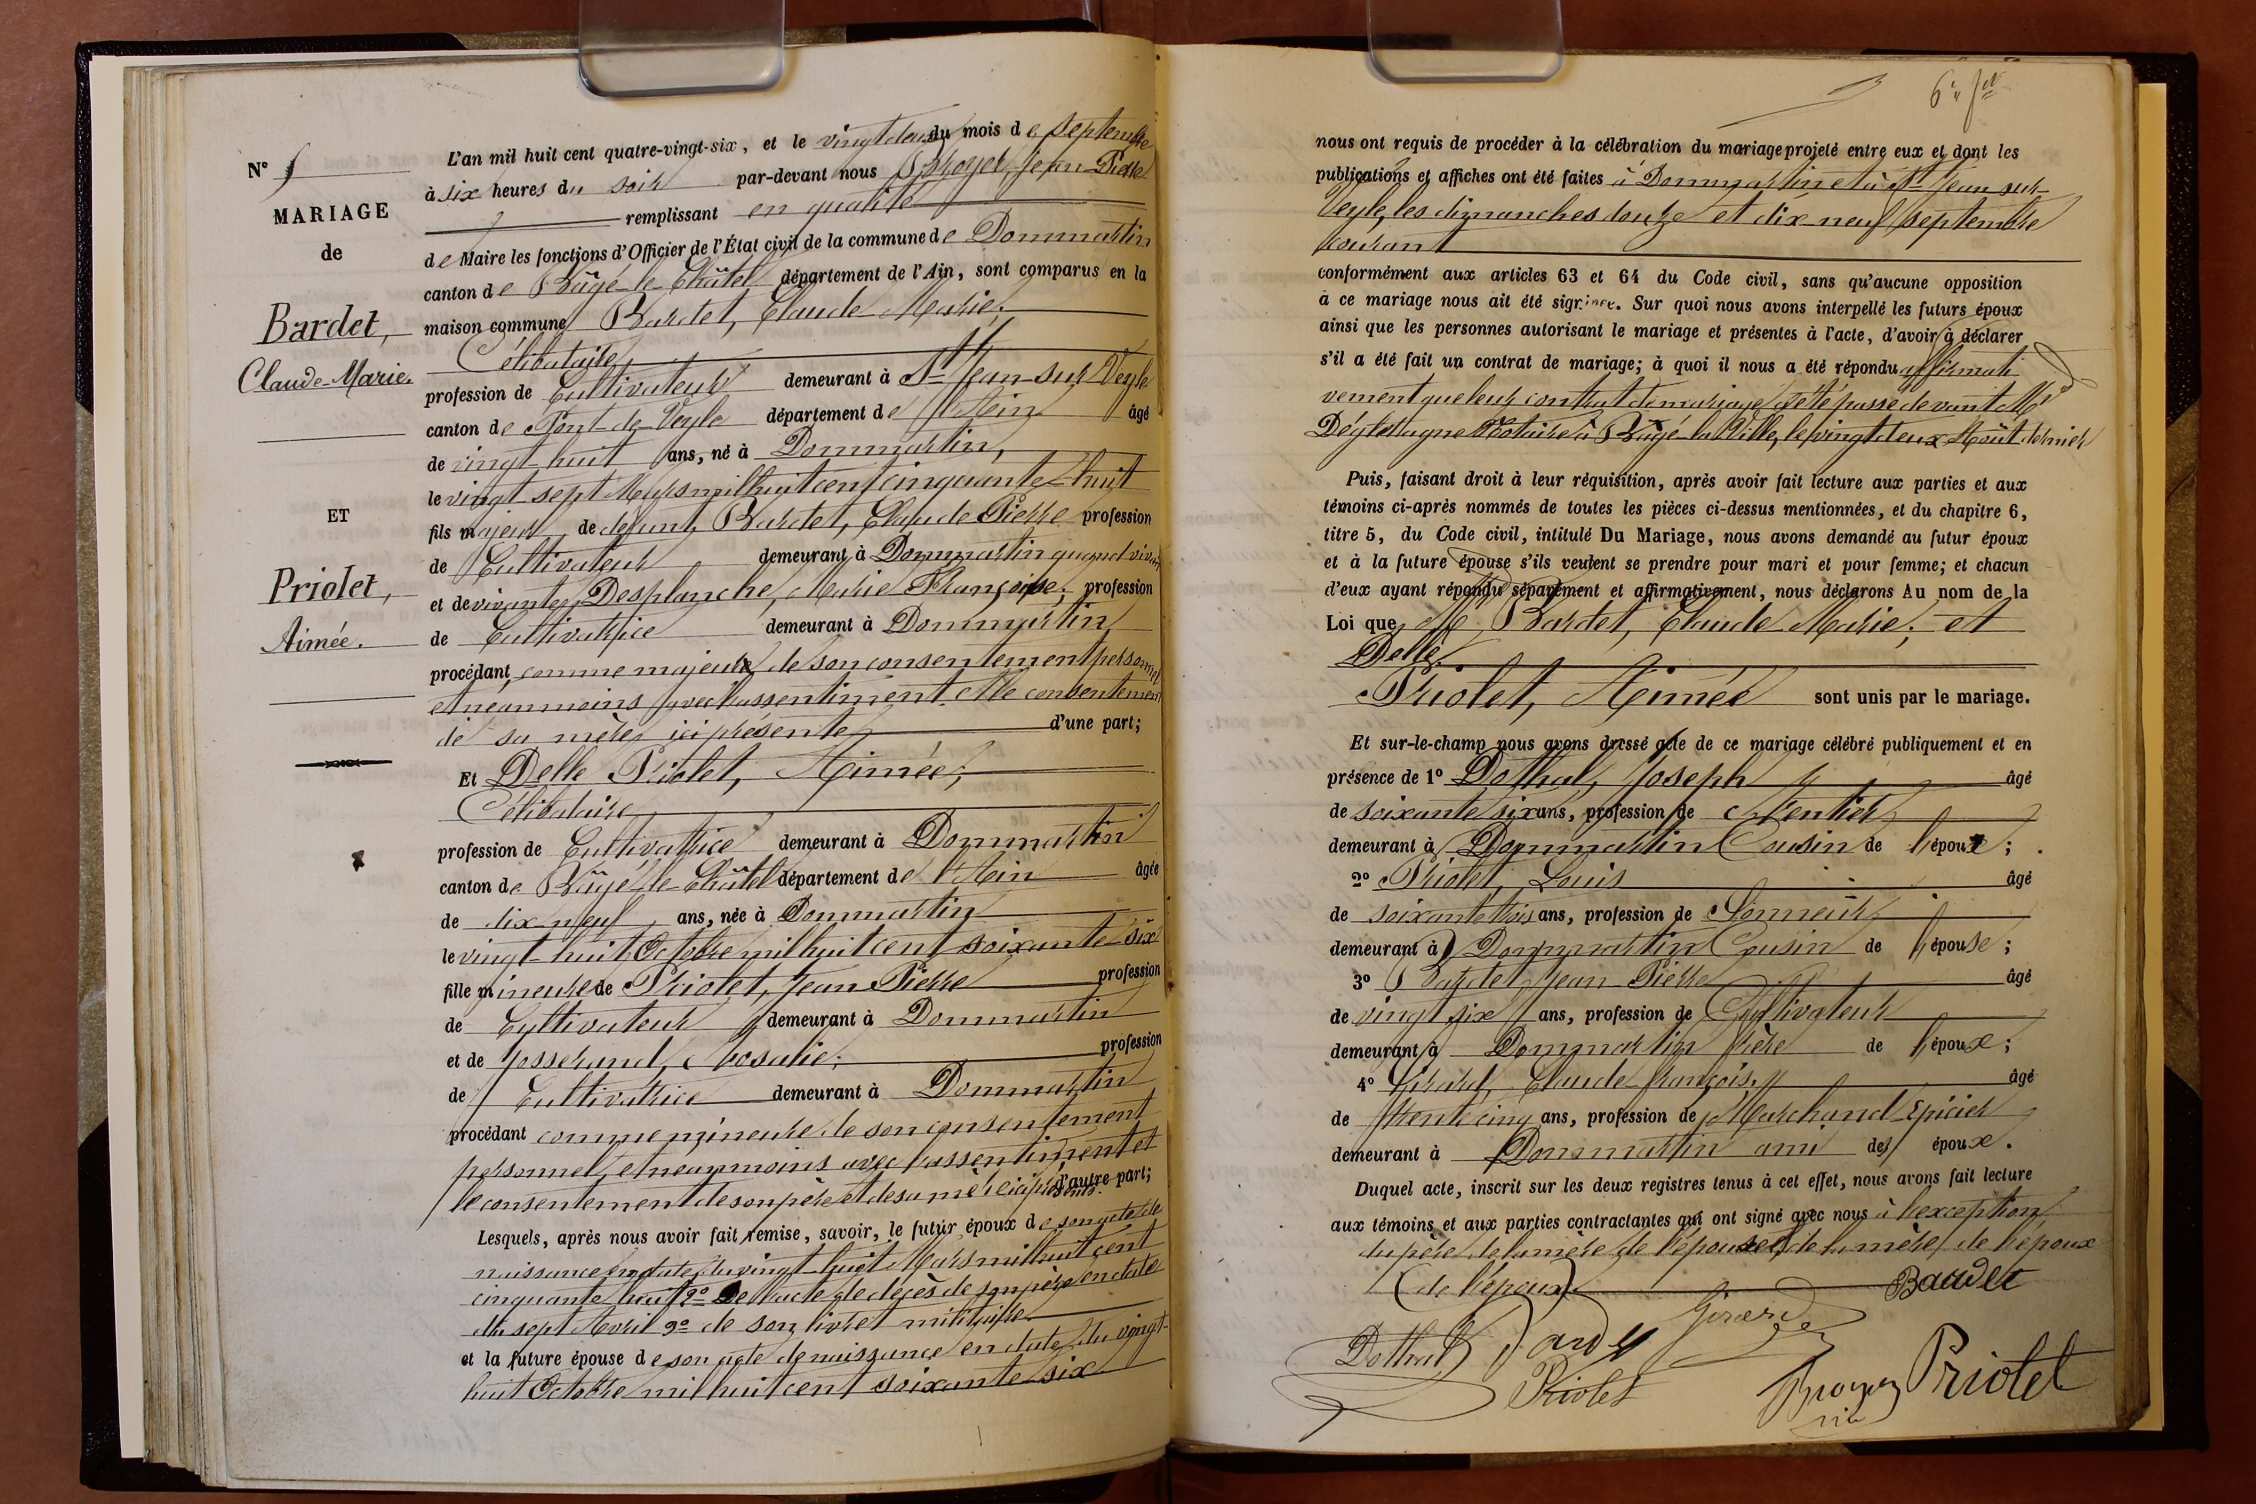 N°
MARIAGE
de
Bardet,
Claude-Marie.
ET
Priolet,
Aimée.
L'an mil huit cent quatre-vingt-six, et le vingt deux du mois de Septembre
à six heures du soir par-devant nous Broyer, Jean Pierre
remplissant en qualité
de Maire les fonctions d'Officier de l'État civil de la commune de Dommartin
canton de Bâgé-le-Châtel département de l'Ain, sont comparus en la
maison commune Bardet, Claude Marie,
Célibataire
profession de Cultivateur demeurant à St Jean sur Veyle
canton de Pont de Veyle département de l'Ain âgé
de vingt huit ans, né à Dommartin,
le vingt sept Mars mil huit cent cinquante huit
fils majeur de défunt Bardet, Claude Pierre profession
de Cultivateur demeurant à Dommartin quand vivait
et de vivante Desplanche, Marie Françoise, profession
de Cultivatrice demeurant à Dommartin
procédant comme majeur de son consentement personnel
et néanmoins avec l'assentiment et le consentement
de sa mère ici présente d'une part;
Et Delle Priolet, Aimée,
Célibataire
profession de Cultivatrice demeurant à Dommartin
canton de Bâgé-le-Châtel département de l'Ain âgée
de dix neuf ans, née à Dommartin
le vingt huit Octobre mil huit cent soixante six
fille mineure de Priolet, Jean Pierre profession
de Cultivateur demeurant à Dommartin
et de Josserand, Rosalie; profession
de Cultivatrice demeurant à Dommartin
procédant comme mineure de son consentement
personnel et néanmoins avec l'assentiment et
le consentement de son père et de sa mère ici présents. d'autre part;
Lesquels, après nous avoir fait remise, savoir, le futur époux de son acte de
naissance en date du vingt huit Mars mil huit cent
cinquante huit 2° De l'acte de décès de son père en date
du sept Avril 3° de son livret militaire
et la future épouse de son acte de naissance en date du vingt-
huit Octobre mil huit cent soixante six
nous ont requis de procéder à la célébration du mariage projeté entre eux et dont les
publications et affiches ont été faites à Dommartin et à St Jean sur
Veyle, les dimanches douze et dix-neuf septembre
courant
conformément aux articles 63 et 64 du Code civil, sans qu'aucune opposition
à ce mariage nous ait été signifiée. Sur quoi nous avons interpellé les futurs époux
ainsi que les personnes autorisant le mariage et présentes à l'acte, d'avoir à déclarer
s'il a été fait un contrat de mariage; à quoi il nous a été répondu affirmati
vement que leur contrat de mariage a été passé devant Me
Notaire à Bâgé-la-Ville, le vingt deux Août dernier
Puis, faisant droit à leur réquisition, après avoir fait lecture aux parties et aux
témoins ci-après nommés de toutes les pièces ci-dessus mentionnées, et du chapitre 6,
titre 5, du Code civil, intitulé Du Mariage, nous avons demandé au futur époux
et à la future épouse s'ils veulent se prendre pour mari et pour femme; et chacun
d'eux ayant répondu séparément et affirmativement, nous déclarons Au nom de la
Loi que M. Bardet, Claude Marie, et
Delle
Priolet, Aimée sont unis par le mariage.
Et sur-le-champ nous avons dressé acte de ce mariage célébré publiquement et en
présence de 1° Dothal, Joseph âgé
de soixante six ans, profession de Rentier
demeurant à Dommartin Cousin de l'époux;
2° Priolet, Louis âgé
de soixante trois ans, profession de Sonneur
demeurant à Dommartin Cousin de l'épouse;
3° Bardet, Jean Pierre âgé
de vingt six ans, profession de Cultivateur
demeurant à Dommartin frère de l'époux;
4° Girard, Claude François, âgé
de trente cinq ans, profession de Marchand Epicier
demeurant à Dommartin ami des époux.
Duquel acte, inscrit sur les deux registres tenus à cet effet, nous avons fait lecture
aux témoins et aux parties contractantes qui ont signé avec nous à l'exception
du père de la mère de l'épouse et de la mère de l'époux
(de l'époux) Bardet
Girard
Dothal
Priolet
Broyer
Priolet